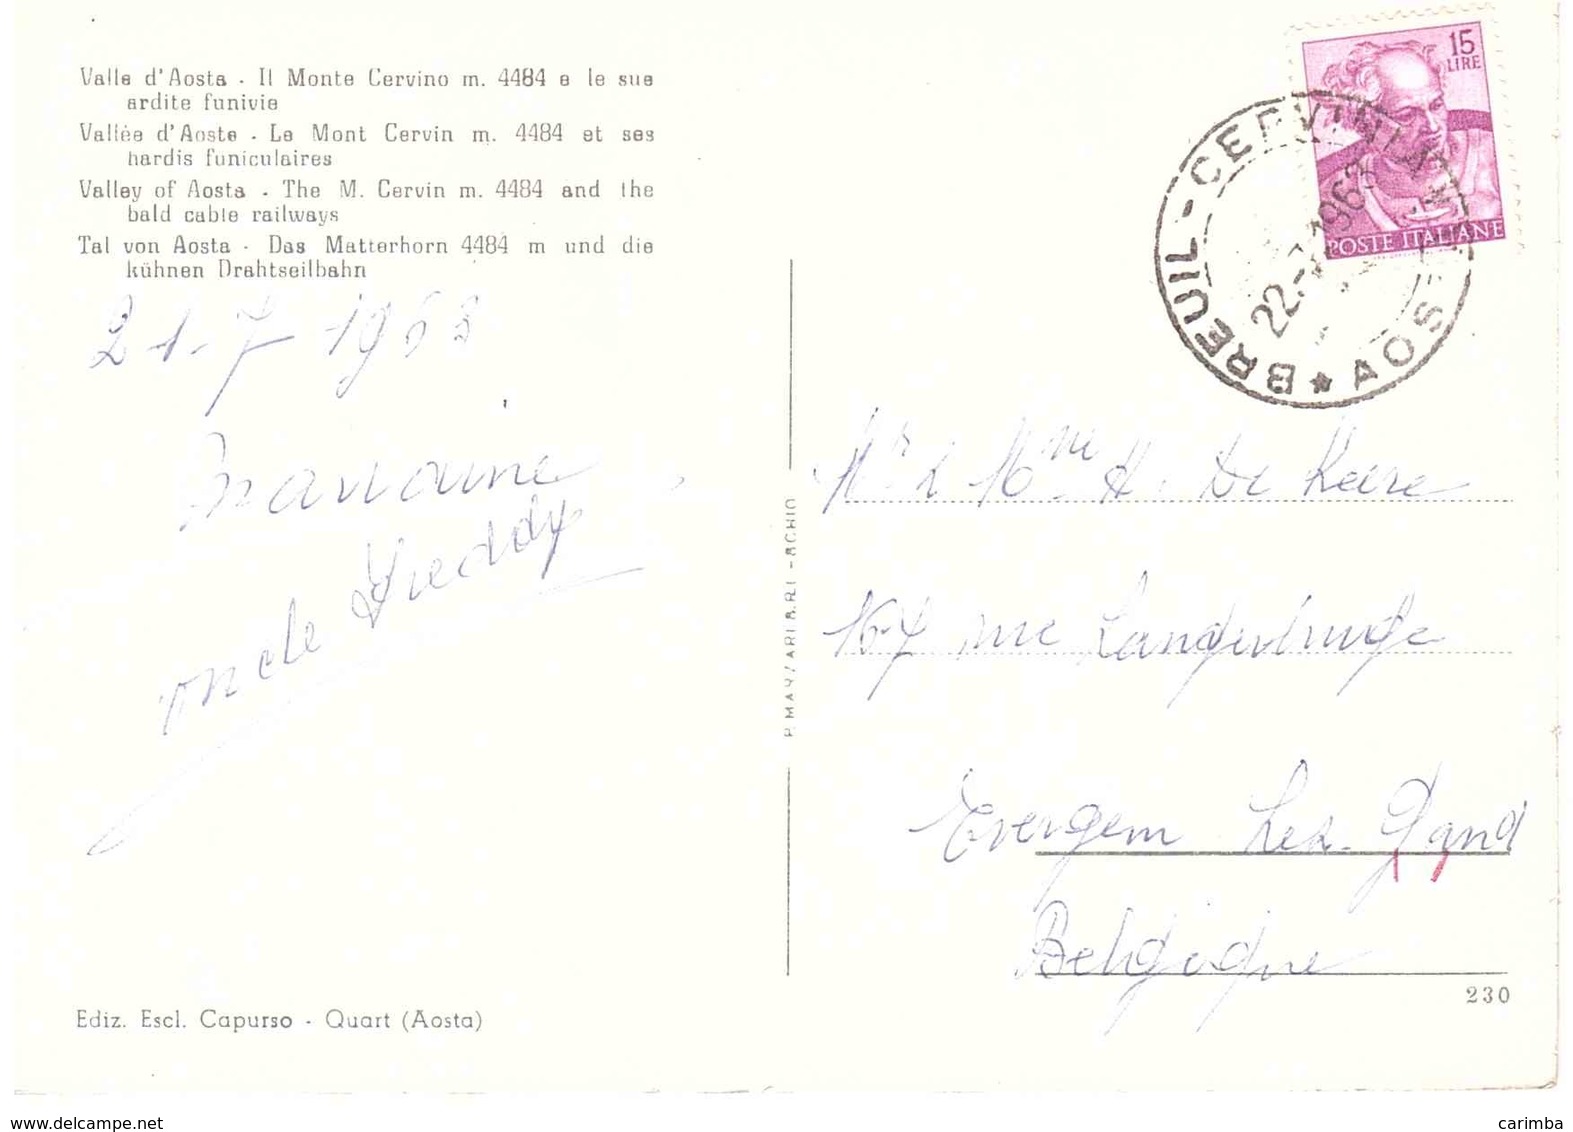 Valle d'Aosta - Il Monte Cervino m. 4484 e le sue
ardite funivie
Vallée d'Aoste - Le Mont Cervin m. 4484 et ses
hardis funiculaires
Valley of Aosta - The M. Cervin m. 4484 and the
bald cable railways
Tal von Aosta - Das Matterhorn 4484 m und die
kühnen Drahtseilbahn
21-7 1963
oncle Freddy
15
LIRE
POSTE ITALIANE
BREUIL-CERVINIA
AOSTA
22-7-1963
Mr & Mme H. De Keere
167 rue Langerbrugge
Evergem Lez-Gand
Belgique
230
Ediz. Escl. Capurso - Quart (Aosta)
www.delcampe.net
carimba